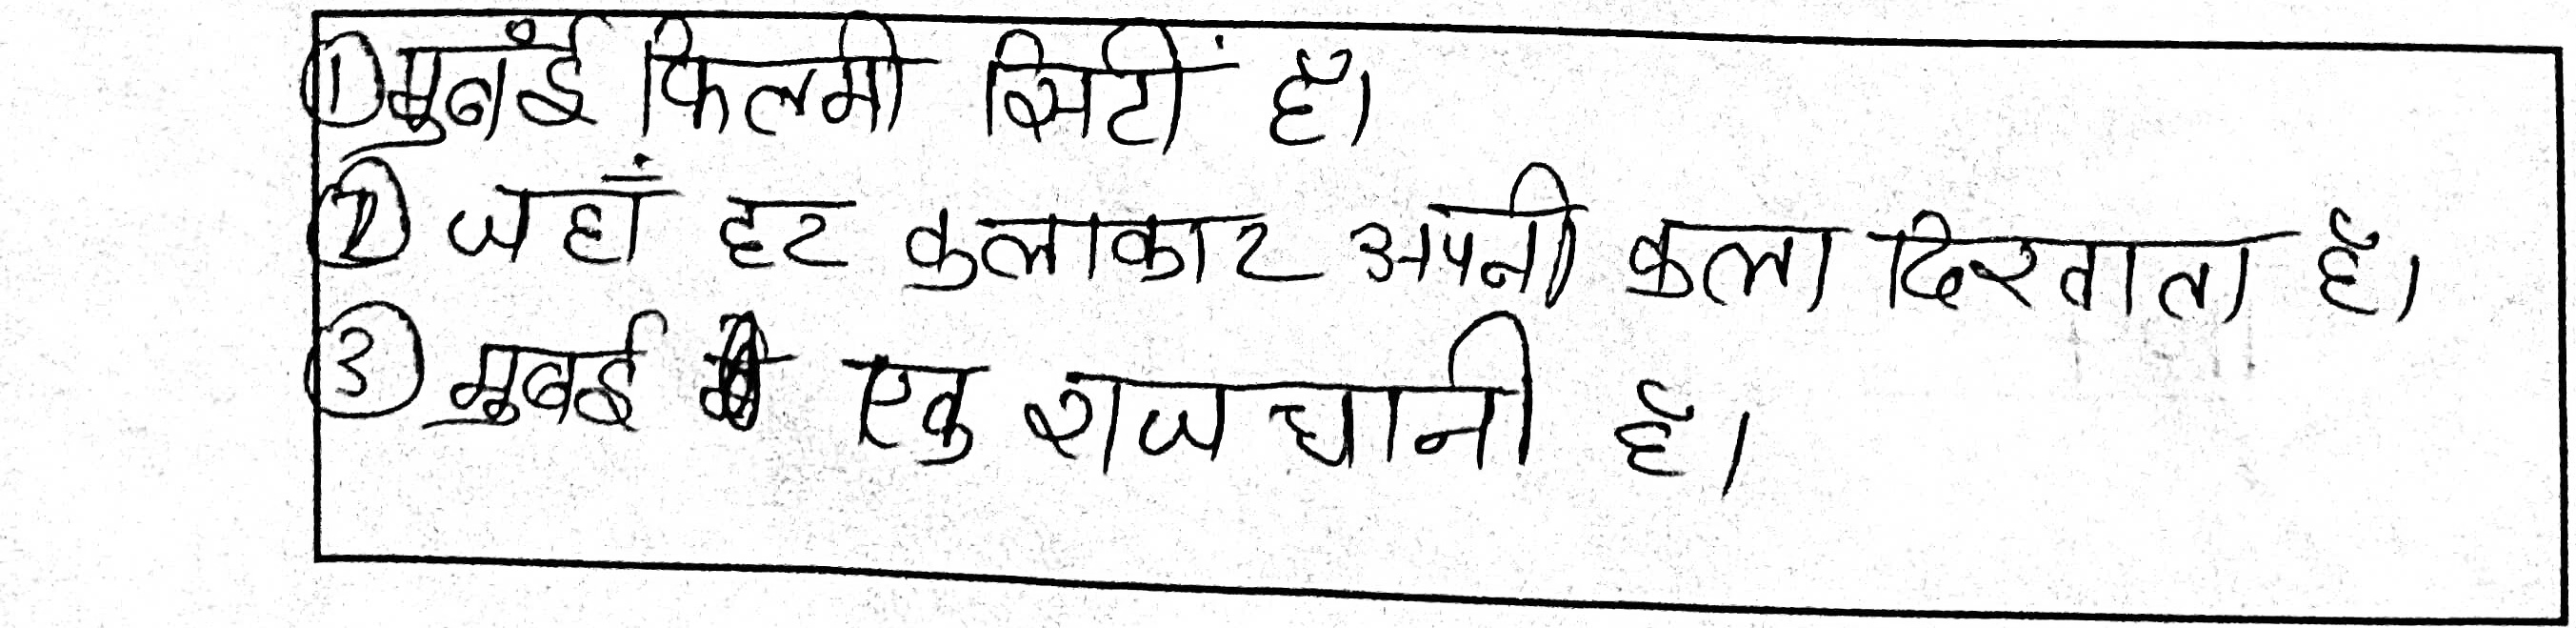 ① मुबंई फिलमी सिटीं हैं।
② जहाँ हर कलाकार अपनी कला दिखाता हैं।
③ मुबई एक राजधानी हैं।